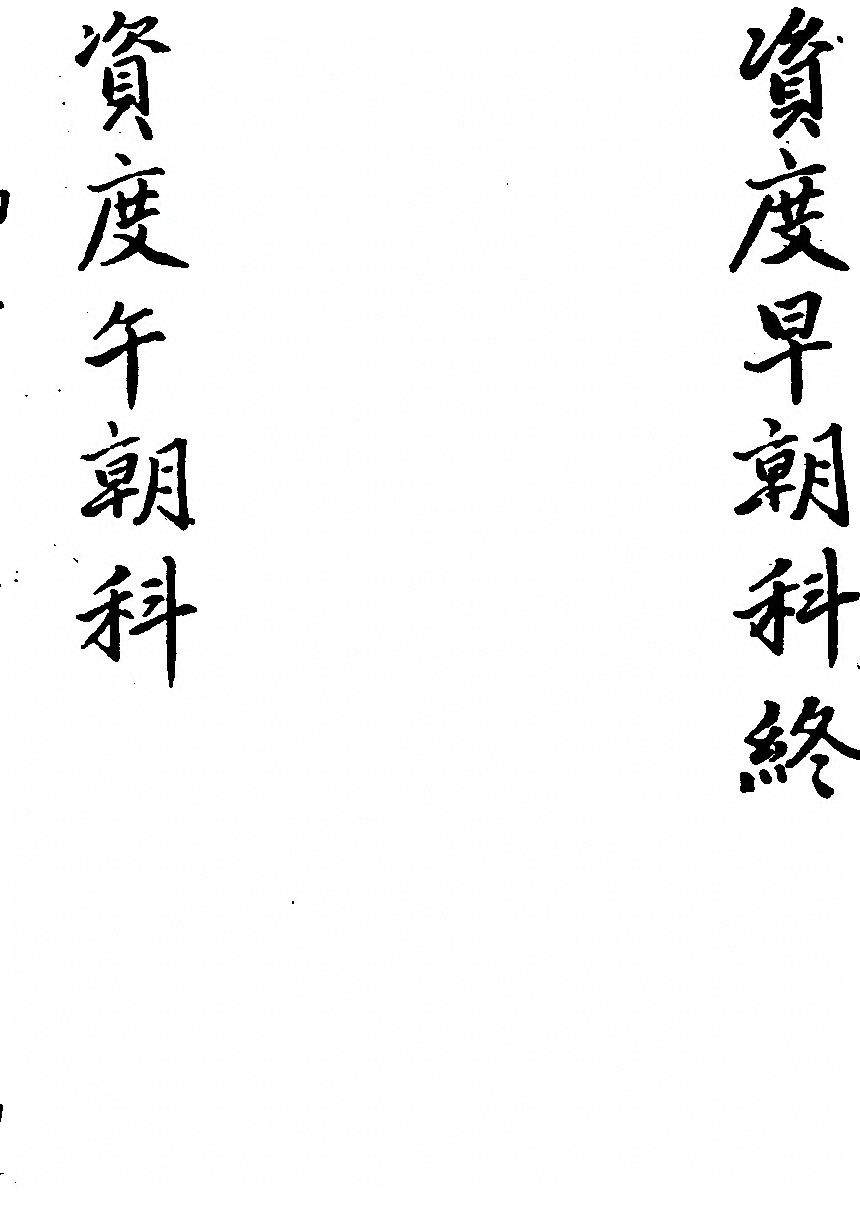 資度早朝科終
資度午朝科